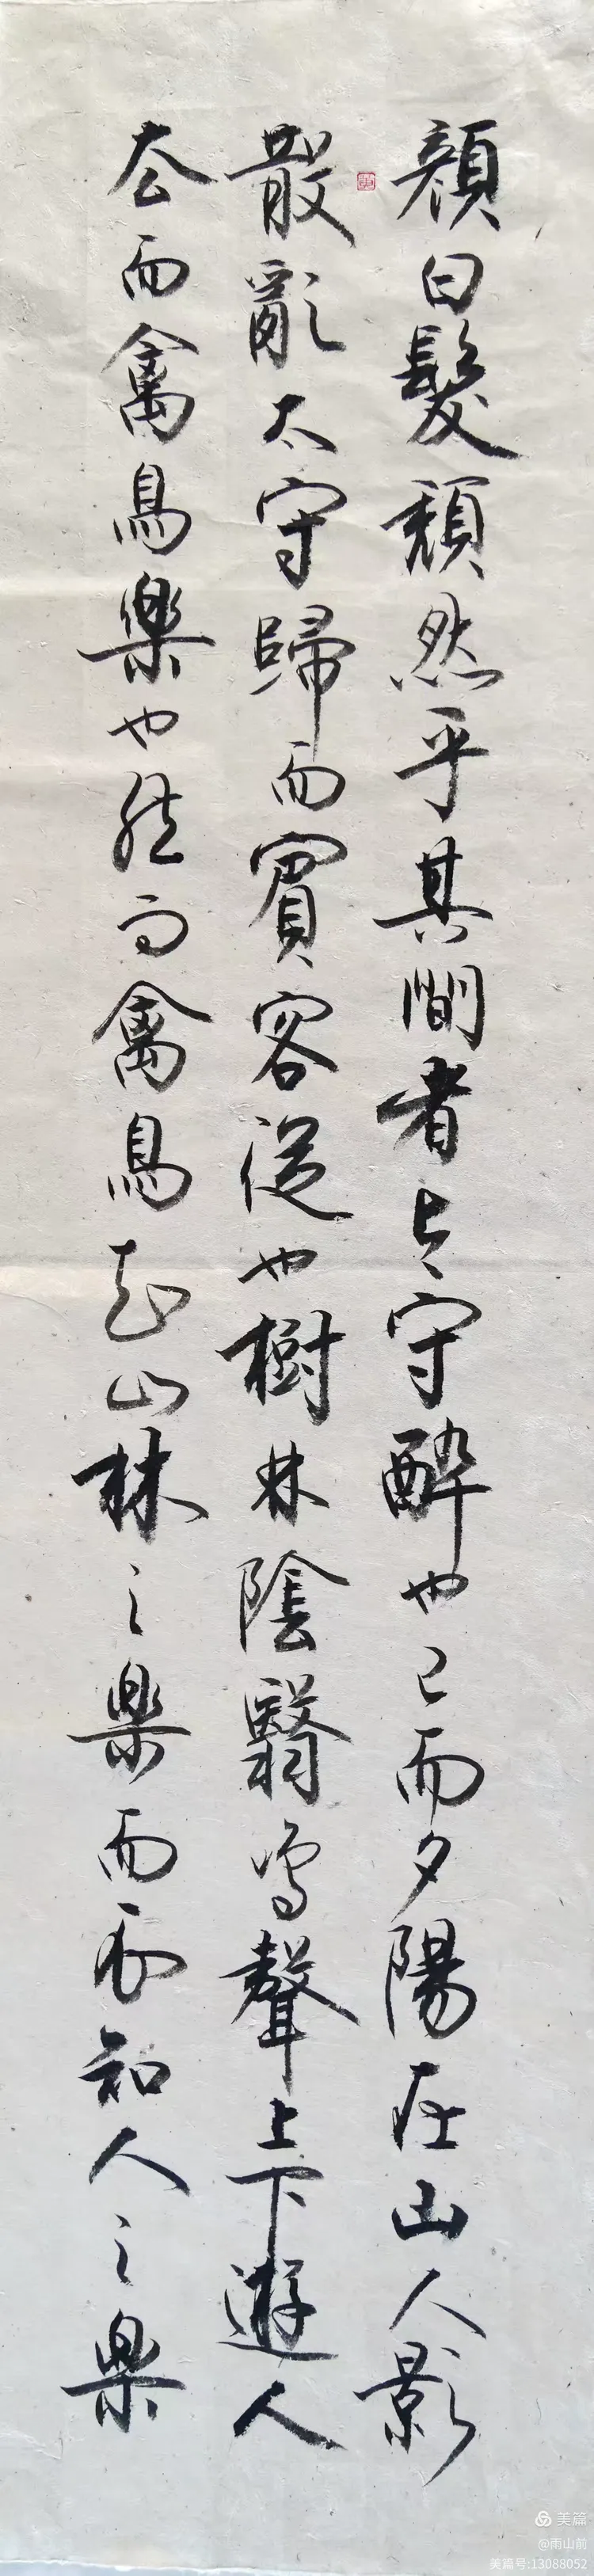 顏白髮頹然乎其間者太守醉也已而夕陽在山人影
散亂太守歸而賓客從也樹林陰翳鳴聲上下遊人
去而禽鳥樂也然而禽鳥知山林之樂而不知人之樂
美篇
@雨山前
美篇号:13088052